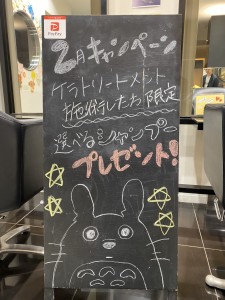 PayPay
2月キャンペーン
ケラトリートメント
施術したお客様限定
選べるシャンプー
プレゼント!